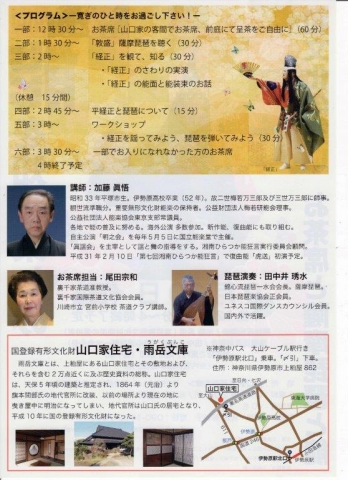 <プログラム>―寛ぎのひと時をお過ごし下さい！―
一部：12時30分～ お茶席「山口家の客間でお茶席、前庭にて呈茶をご自由に」(60分)
二部：1時30分～ 「敦盛」薩摩琵琶を聴く(30分)
三部：2時～ 「経正」を観て、知る(30分)
・「経正」のさわりの実演
・「経正」の能面と能装束のお話
(休憩 15分間)
四部：2時45分～ 平経正と琵琶について(15分)
五部：3時～ ワークショップ
・経正を謡ってみよう、琵琶を弾いてみよう(30分)
六部：3時30分～ 一部でお入りになれなかった方のお茶席
4時終了予定
「経正」
講師：加藤 眞悟
昭和33年平塚市生。伊勢原高校卒業（52年）。故二世梅若万三郎及び三世万三郎に師事。
観世流準職分。重要無形文化財能楽の保持者。公益財団法人梅若研能会理事。
公益社団法人能楽協会東京支部常議員。
各地で能の普及に努める。海外公演多数参加。新作能、復曲能にも取り組む。
自主公演「明之会」を毎年5月5日に国立能楽堂で主催。
「真謡会」を主宰として謡と舞の指導をする。湘南ひらつか能狂言実行委員会顧問。
平成31年2月10日「第七回湘南ひらつか能狂言」で復曲能「虎送」初演予定。
お茶席担当：尾田宗和
裏千家茶道准教授。
裏千家国際茶道文化協会会員。
川崎市立 宮前小学校 茶道クラブ講師。
琵琶演奏：田中井 琇水
錦心流琵琶一水会会員。薩摩琵琶。
日本琵琶楽協会正会員。
ユネスコ国際ダンスカウンシル会員。
国内外で活躍。
国登録有形文化財 山口家住宅・雨岳文庫
うがくぶんこ
雨岳文庫とは、上粕屋にある山口家住宅とその敷地および、
それらを含む2万点近くに及ぶ歴史資料の総称。山口家住宅
は、天保5年頃の建築と推定され、1864年（元治）より
旗本間部氏の地代官所に改装、以前の場所より現在の地に
曳き屋中に明治になってしまい、地代官所は山口氏の居宅となり、
平成10年に国の登録有形文化財になった。
※神奈中バス 大山ケーブル駅行き
「伊勢原駅北口」乗車。「〆引」下車。
住所：神奈川県伊勢原市上粕屋862
山口家住宅
伊勢原駅北口
伊勢原駅